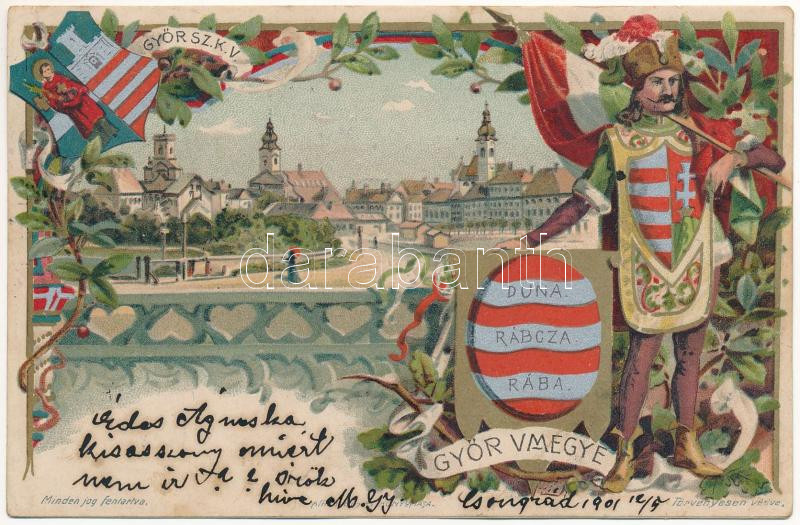 GYŐR SZ.K.V.
DUNA.
RÁBCZA.
RÁBA.
GYŐR VMEGYE
darabanth
Édes Ágneska
kisasszony miért
nem ír
híve M.
Csongrád 1901
Minden jog fentartva.
Törvényesen védve.